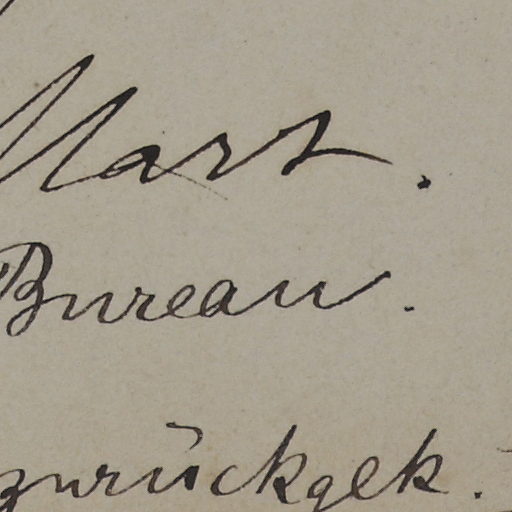 Mart.
Bureau.
zurückgek.